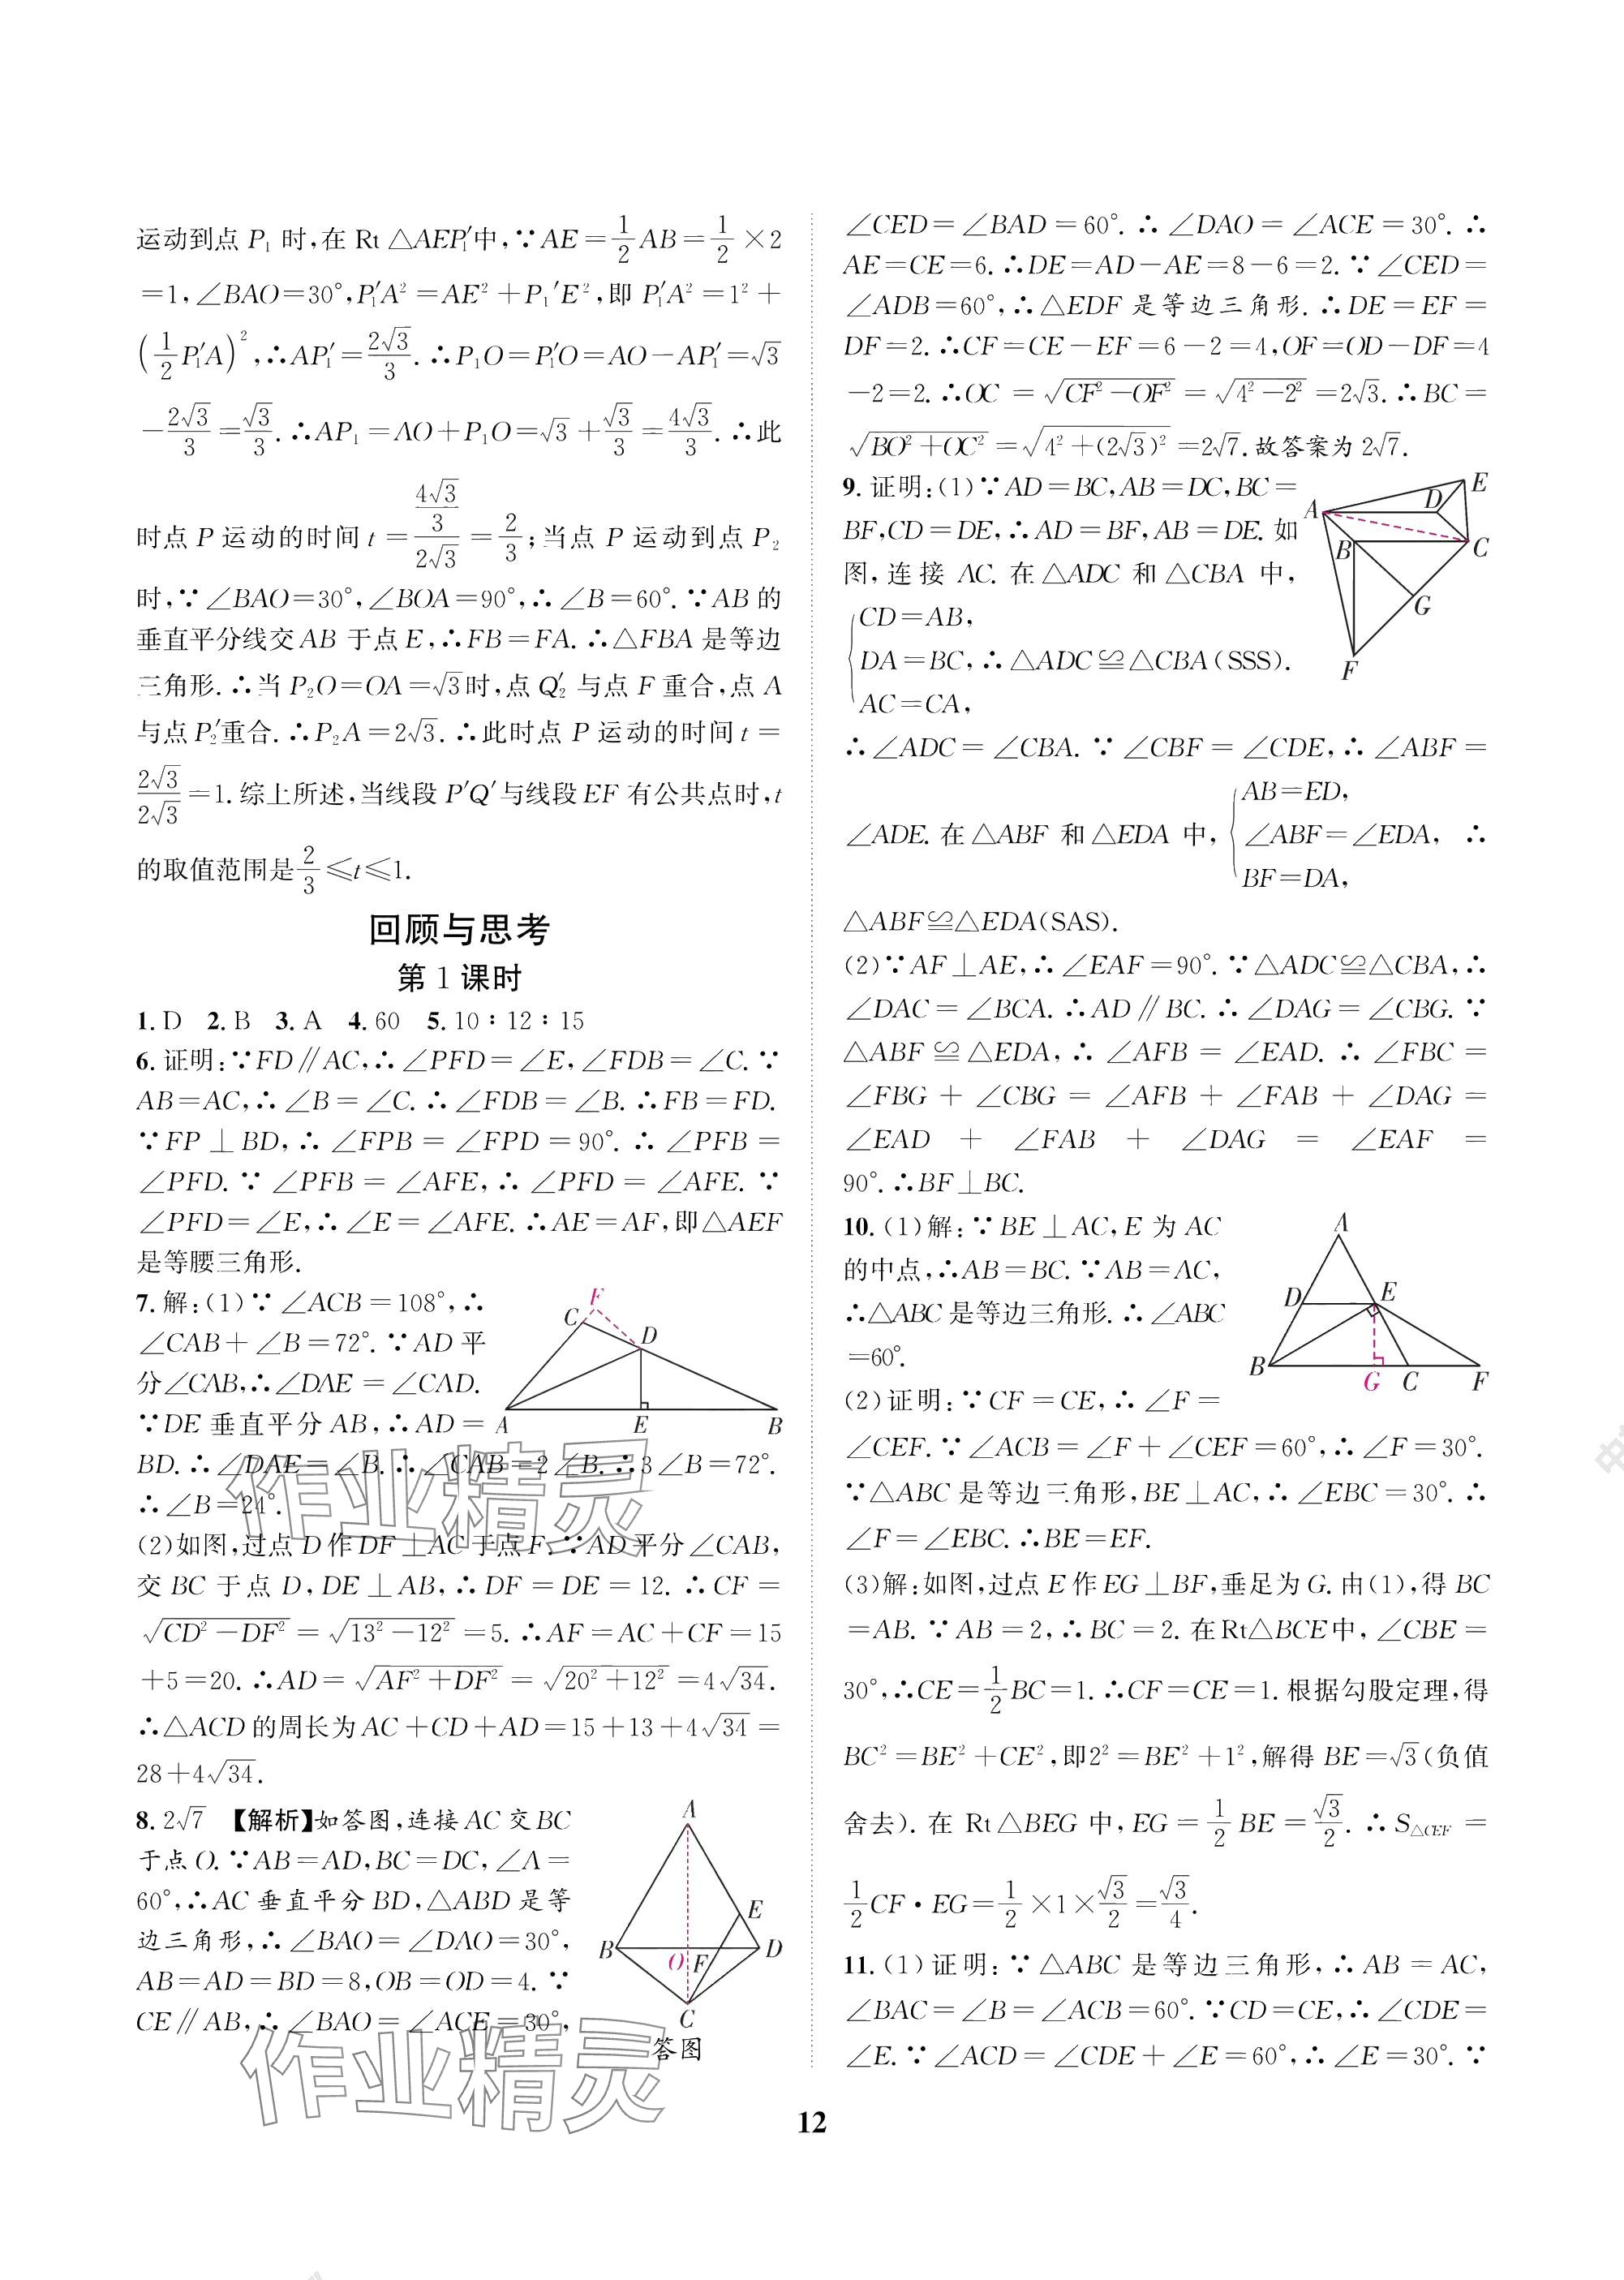 运动到点 P₁ 时,在 Rt △AEP₁′中,∵AE=1/2 AB=1/2×2
=1,∠BAO=30°,P₁′A²=AE²+P₁′E²,即 P₁′A²=1²+
(1/2 P₁′A)²,∴AP₁′=2√3/3.∴P₁O=P₁′O=AO-AP₁′=√3
-2√3/3=√3/3.∴AP₁=AO+P₁O=√3+√3/3=4√3/3.∴此
时点 P 运动的时间 t=(4√3/3)/(2√3)=2/3;当点 P 运动到点 P₂
时,∵∠BAO=30°,∠BOA=90°,∴∠B=60°.∵AB 的
垂直平分线交 AB 于点 E,∴FB=FA.∴△FBA 是等边
三角形.∴当 P₂O=OA=√3时,点 Q₂′ 与点 F 重合,点 A
与点 P₂′重合.∴P₂A=2√3.∴此时点 P 运动的时间 t=
2√3/2√3=1.综上所述,当线段 P′Q′与线段 EF 有公共点时,t
的取值范围是2/3≤t≤1.
回顾与思考
第 1 课时
1. D 2. B 3. A 4. 60 5. 10∶12∶15
6. 证明:∵FD∥AC,∴∠PFD=∠E,∠FDB=∠C.∵
AB=AC,∴∠B=∠C.∴∠FDB=∠B.∴FB=FD.
∵FP⊥BD,∴∠FPB=∠FPD=90°.∴∠PFB=
∠PFD.∵∠PFB=∠AFE,∴∠PFD=∠AFE.∵
∠PFD=∠E,∴∠E=∠AFE.∴AE=AF,即△AEF
是等腰三角形.
7. 解:(1)∵∠ACB=108°,∴
∠CAB+∠B=72°.∵AD 平
分∠CAB,∴∠DAE=∠CAD.
∵DE 垂直平分 AB,∴AD=
BD.∴∠DAE=∠B.∴∠CAB=2∠B.∴3∠B=72°.
∴∠B=24°.
C F D A E B
(2)如图,过点 D 作 DF⊥AC 于点 F.∵AD 平分∠CAB,
交 BC 于点 D,DE⊥AB,∴DF=DE=12.∴CF=
√(CD²-DF²)=√(13²-12²)=5.∴AF=AC+CF=15
+5=20.∴AD=√(AF²+DF²)=√(20²+12²)=4√34.
∴△ACD 的周长为 AC+CD+AD=15+13+4√34=
28+4√34.
8. 2√7 【解析】如答图,连接 AC 交 BC
于点 O.∵AB=AD,BC=DC,∠A=
60°,∴AC 垂直平分 BD,△ABD 是等
边三角形,∴∠BAO=∠DAO=30°,
AB=AD=BD=8,OB=OD=4.∵
CE∥AB,∴∠BAO=∠ACE=30°,
A E B O F D C
答图
∠CED=∠BAD=60°.∴∠DAO=∠ACE=30°.∴
AE=CE=6.∴DE=AD-AE=8-6=2.∵∠CED=
∠ADB=60°,∴△EDF 是等边三角形.∴DE=EF=
DF=2.∴CF=CE-EF=6-2=4,OF=OD-DF=4
-2=2.∴OC=√(CF²-OF²)=√(4²-2²)=2√3.∴BC=
√(BO²+OC²)=√(4²+(2√3)²)=2√7.故答案为 2√7.
9. 证明:(1)∵AD=BC,AB=DC,BC=
BF,CD=DE,∴AD=BF,AB=DE.如
图,连接 AC.在△ADC 和△CBA 中,
CD=AB,
DA=BC,∴△ADC≌△CBA(SSS).
AC=CA,
E A D B C G F
∴∠ADC=∠CBA.∵∠CBF=∠CDE,∴∠ABF=
AB=ED,
∠ADE.在△ABF 和△EDA 中, ∠ABF=∠EDA, ∴
BF=DA,
△ABF≌△EDA(SAS).
(2)∵AF⊥AE,∴∠EAF=90°.∵△ADC≌△CBA,∴
∠DAC=∠BCA.∴AD∥BC.∴∠DAG=∠CBG.∵
△ABF≌△EDA,∴∠AFB=∠EAD.∴∠FBC=
∠FBG+∠CBG=∠AFB+∠FAB+∠DAG=
∠EAD+∠FAB+∠DAG=∠EAF=
90°.∴BF⊥BC.
10. (1)解:∵BE⊥AC,E 为 AC
的中点,∴AB=BC.∵AB=AC,
∴△ABC 是等边三角形.∴∠ABC
=60°.
A D E B G C F
(2)证明:∵CF=CE,∴∠F=
∠CEF.∵∠ACB=∠F+∠CEF=60°,∴∠F=30°.
∵△ABC 是等边三角形,BE⊥AC,∴∠EBC=30°.∴
∠F=∠EBC.∴BE=EF.
(3)解:如图,过点 E 作 EG⊥BF,垂足为 G.由(1),得 BC
=AB.∵AB=2,∴BC=2.在Rt△BCE中,∠CBE=
30°,∴CE=1/2 BC=1.∴CF=CE=1.根据勾股定理,得
BC²=BE²+CE²,即2²=BE²+1²,解得 BE=√3(负值
舍去).在 Rt△BEG 中,EG=1/2 BE=√3/2.∴S△CEF=
1/2 CF·EG=1/2×1×√3/2=√3/4.
11. (1)证明:∵△ABC 是等边三角形,∴AB=AC,
∠BAC=∠B=∠ACB=60°.∵CD=CE,∴∠CDE=
∠E.∵∠ACD=∠CDE+∠E=60°,∴∠E=30°.∵
12
作业精灵
作业精灵